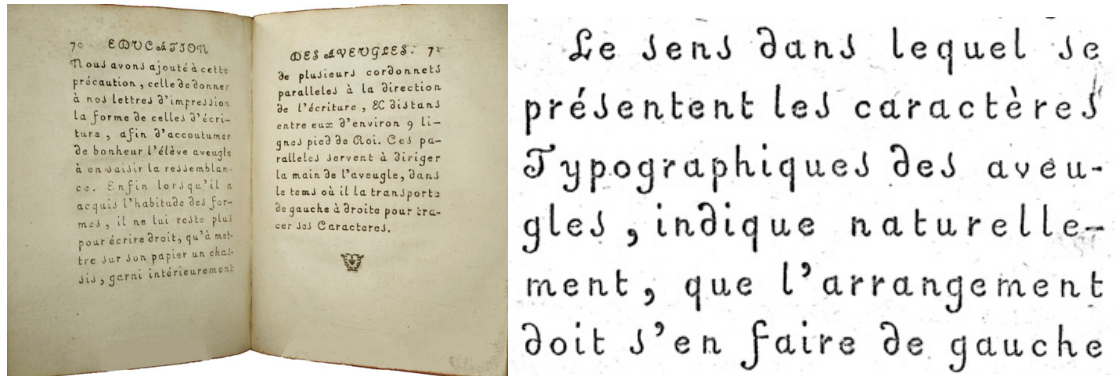 70 EDUCATION
Nous avons ajouté à cette
précaution, celle de donner
à nos lettres d'impression
la forme de celles d'écri-
ture, afin d'accoutumer
de bonheur l'élève aveugle
à en saisir la ressemblan-
ce. Enfin lorsqu'il a
acquis l'habitude des for-
mes, il ne lui reste plus
pour écrire droit, qu'à met-
tre sur son papier un chas-
sis, garni intérieurement
DES AVEUGLES. 71
de plusieurs cordonnets
paralleles à la direction
de l'écriture, & distans
entre eux d'environ 9 li-
gnes pied de Roi. Ces pa-
ralleles servent à diriger
la main de l'aveugle, dans
le tems où il la transporte
de gauche à droite pour tra-
cer ses Caracteres.
Le sens dans lequel se
présentent les caractères
Typographiques des aveu-
gles, indique naturelle-
ment, que l'arrangement
doit s'en faire de gauche